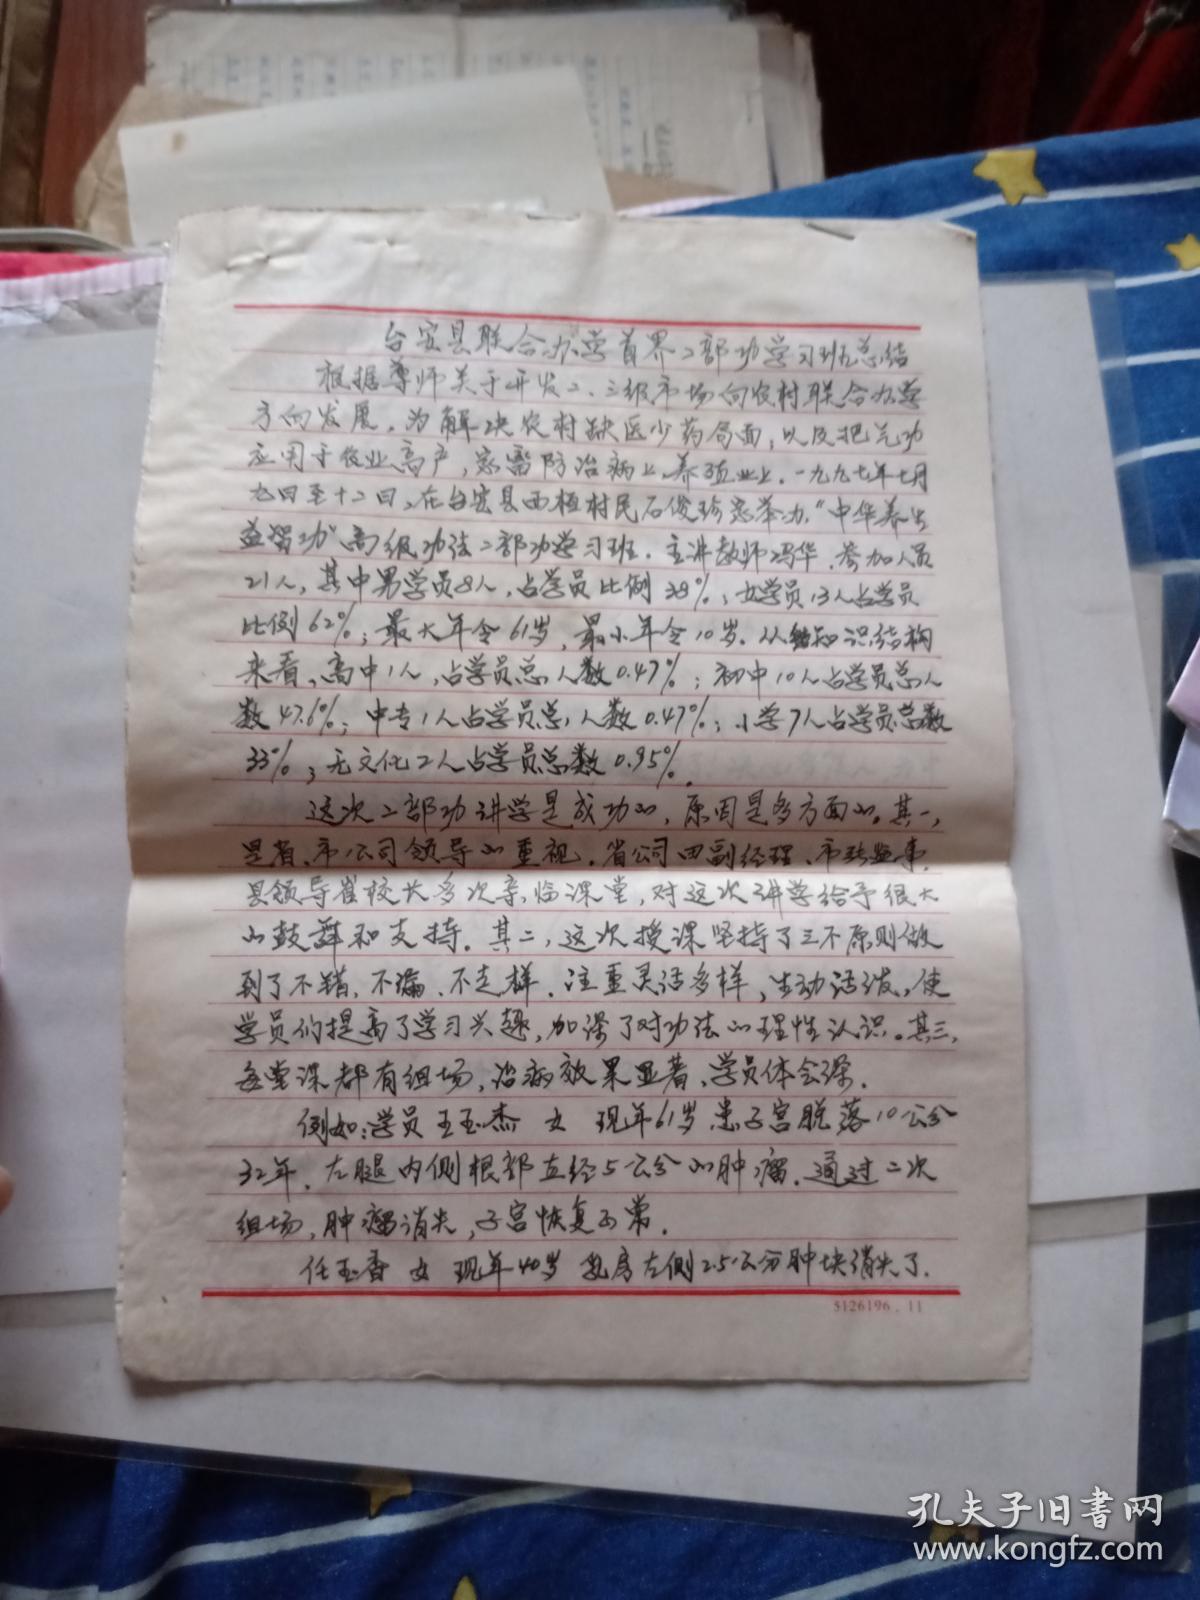 台安县联合办学首界二部功学习班总结
根据尊师关于开发二、三级市场向农村联合办学
方向发展,为解决农村缺医少药局面,以及把气功
应用于农业高产,家畜防治病上、养殖业上。一九九七年七月
九日至十二日,在台安县西植村民石俊珍家举办“中华养生
益智功”高级功法二部功学习班。主讲教师冯华,参加人员
21人,其中男学员8人,占学员比例38%,女学员13人占学员
比例62%;最大年令61岁,最小年令10岁。从知识结构
来看,高中1人,占学员总人数0.47%;初中10人占学员总人
数47.6%;中专1人占学员总人数0.47%;小学7人占学员总数
33%;无文化2人占学员总数0.95%.
这次二部功讲学是成功的,原因是多方面的。其一,
是省、市公司领导的重视,省公司田副经理、市张监事,
县领导崔校长多次亲临课堂,对这次讲学给予很大
的鼓舞和支持。其二,这次授课坚持了三不原则做
到了不错、不漏、不走样。注重灵活多样,生动活泼,使
学员们提高了学习兴趣,加深了对功法的理性认识。其三,
每堂课都有组场,治病效果显著,学员体会深.
例如:学员王玉杰 女 现年61岁 患子宫脱落10公分
32年,左腿内侧根部直经5公分的肿瘤,通过二次
组场,肿瘤消失,子宫恢复正常.
任玉香 女 现年40岁 乳房左侧2.5公分肿块消失了.
5126196.11
孔夫子旧书网
www.kongfz.com